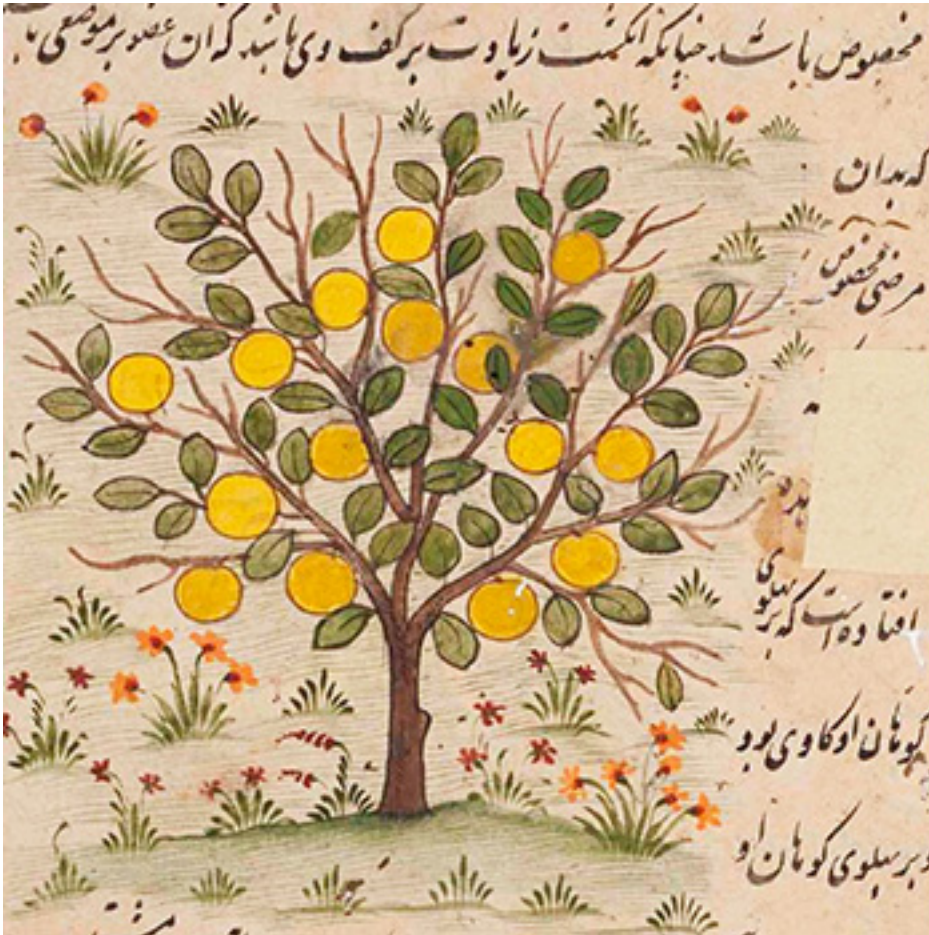 مخصوص باشد چنانکه انگشت زیادت بر کف وی باشد که ان عضو بر موضعی
که بدان
مرضی مخصوص
افتاده است که بر پهلوی
کوهان او کاوی بود
و بر پهلوی کوهان او